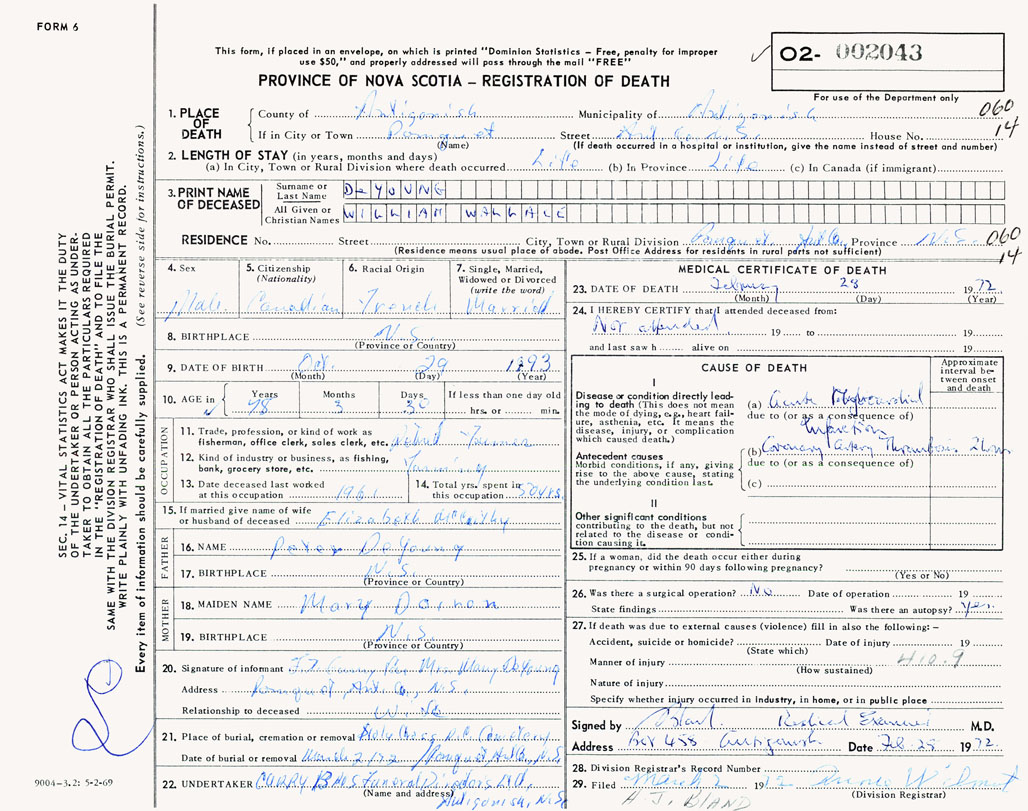 FORM 6
This form, if placed in an envelope, on which is printed "Dominion Statistics – Free, penalty for improper
use $50," and properly addressed will pass through the mail "FREE"
PROVINCE OF NOVA SCOTIA – REGISTRATION OF DEATH
02- 002043
For use of the Department only
060
14
1. PLACE OF DEATH
County of Antigonish Municipality of Antigonish
If in City or Town Pomquet Street Ant. Co. N.S. House No.
(Name) (If death occurred in a hospital or institution, give the name instead of street and number)
2. LENGTH OF STAY (in years, months and days)
(a) In City, Town or Rural Division where death occurred Life (b) In Province Life (c) In Canada (if immigrant)
3. PRINT NAME OF DECEASED
Surname or Last Name DeYOUNG
All Given or Christian Names WILLIAM WALLACE
RESIDENCE No. Street City, Town or Rural Division Pomquet Ant Co. Province N.S. 060
(Residence means usual place of abode. Post Office Address for residents in rural parts not sufficient) 14
4. Sex
Male
5. Citizenship
(Nationality)
Canadian
6. Racial Origin
French
7. Single, Married,
Widowed or Divorced
(write the word)
Married
8. BIRTHPLACE N.S.
(Province or Country)
9. DATE OF BIRTH Oct. 29 1893
(Month) (Day) (Year)
10. AGE in
Years Months Days If less than one day old
78 3 30 hrs. or min.
OCCUPATION
11. Trade, profession or kind of work as
fisherman, office clerk, sales clerk, etc. Farmer
12. Kind of industry or business, as fishing,
bank, grocery store, etc. Farming
13. Date deceased last worked
at this occupation 1961
14. Total yrs. spent in
this occupation 50 yrs.
15. If married give name of wife
or husband of deceased Elizabeth McCarthy
FATHER
16. NAME Peter DeYoung
17. BIRTHPLACE N.S.
(Province or Country)
MOTHER
18. MAIDEN NAME Mary
19. BIRTHPLACE N.S.
(Province or Country)
20. Signature of informant Per Mrs. DeYoung
Address Pomquet, Ant. Co., N.S.
Relationship to deceased Wife
21. Place of burial, cremation or removal Holy Cross R.C. Cemetery
Date of burial or removal March 2/72 Pomquet Ant Co. N.S.
22. UNDERTAKER CURRY BROS Funeral Directors Ltd.
(Name and address) Antigonish, N.S.
MEDICAL CERTIFICATE OF DEATH
23. DATE OF DEATH February 28 1972
(Month) (Day) (Year)
24. I HEREBY CERTIFY that I attended deceased from:
Not attended 19 to 19
and last saw h alive on 19
CAUSE OF DEATH
Approximate interval between onset and death
I
Disease or condition directly leading to death (This does not mean the mode of dying, e.g., heart failure, asthenia, etc. It means the disease, injury, or complication which caused death.)
(a) Acute Myocardial
due to (or as a consequence of)
Infarction
Antecedent causes
Morbid conditions, if any, giving rise to the above cause, stating the underlying condition last.
(b) Coronary Artery Thrombosis
due to (or as a consequence of)
(c)
II
Other significant conditions
contributing to the death, but not related to the disease or condition causing it.
25. If a woman, did the death occur either during
pregnancy or within 90 days following pregnancy?
(Yes or No)
26. Was there a surgical operation? No Date of operation 19
State findings Was there an autopsy? Yes
27. If death was due to external causes (violence) fill in also the following: –
Accident, suicide or homicide? Date of injury 19
(State which)
Manner of injury 410.9
(How sustained)
Nature of injury
Specify whether injury occurred in industry, in home, or in public place
Signed by Bland Medical Examiner M.D.
Address Box 458 Antigonish Date Feb 28 1972
28. Division Registrar's Record Number
29. Filed March 2 1972
(Division Registrar)
H J. BLAND
SEC. 14 – VITAL STATISTICS ACT MAKES IT THE DUTY
OF THE UNDERTAKER OR PERSON ACTING AS UNDER-
TAKER TO OBTAIN ALL THE PARTICULARS REQUIRED
IN THE "REGISTRATION OF DEATH" AND TO FILE THE
SAME WITH THE DIVISION REGISTRAR WHO SHALL ISSUE THE BURIAL PERMIT.
WRITE PLAINLY WITH UNFADING INK. THIS IS A PERMANENT RECORD.
Every item of information should be carefully supplied. (See reverse side for instructions.)
9004-3.2: 5-2-69